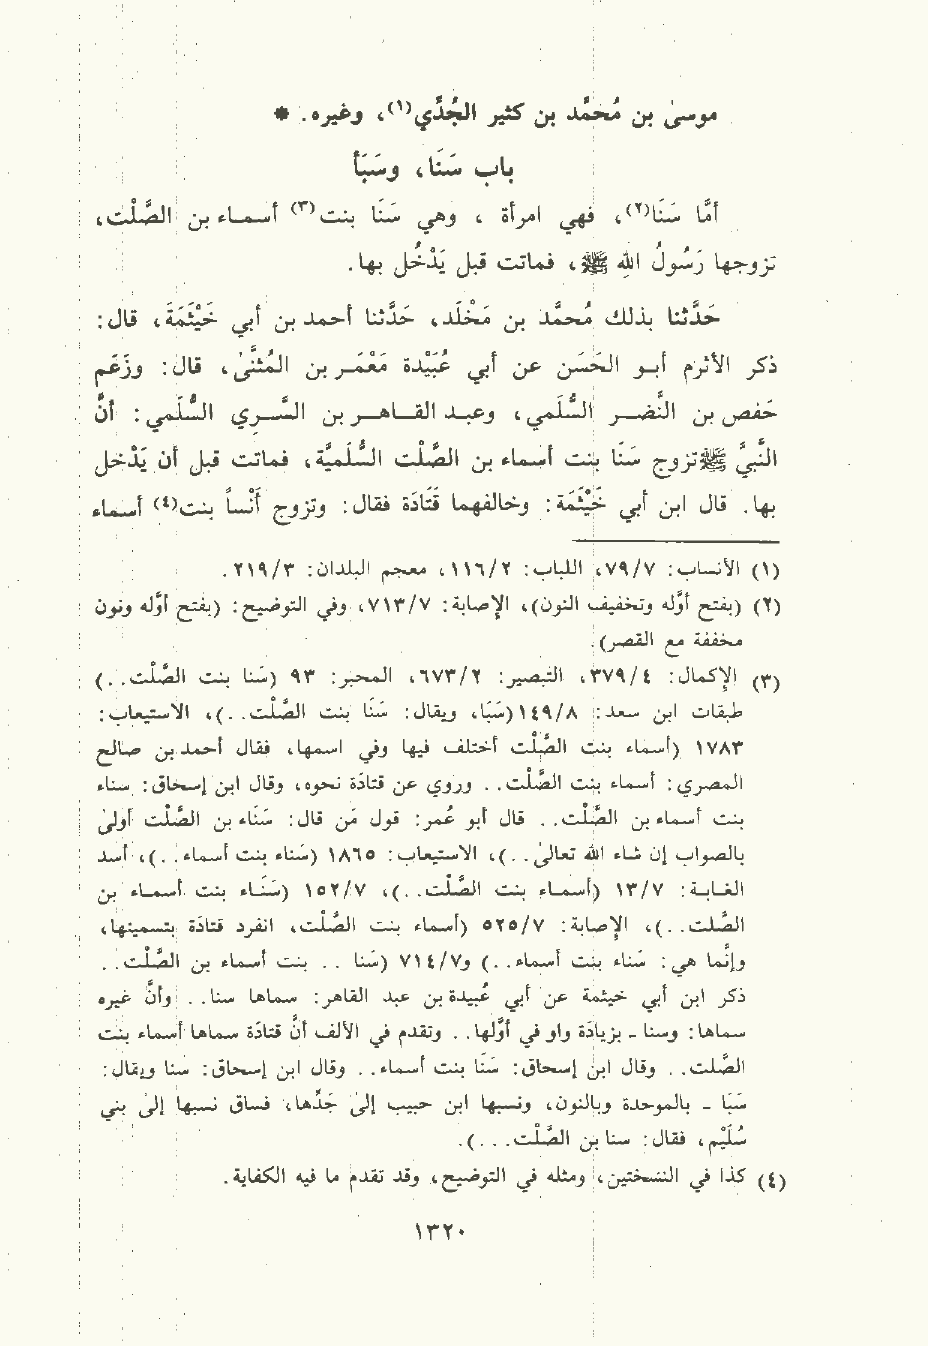 موسىٰ بن مُحمَّد بن كثير الجُدِّي(١)، وغيره. *
باب سَنَا، وسَبَأ
أمَّا سَنَا(٢)، فهي امرأة ، وهي سَنَا بنت(٣) أسماء بن الصَّلْت،
تزوجها رَسُولُ اللهِ ﷺ، فماتت قبل يَدْخُل بها.
حَدَّثنا بذلك مُحمَّد بن مَخْلَد، حَدَّثنا أحمد بن أبي خَيْثَمَة، قال:
ذكر الأثرم أبو الحَسَن عن أبي عُبَيْدة مَعْمَر بن المُثنَّىٰ، قال: وزَعَم
حَفص بن النَّضر السُّلَمي، وعبد القاهر بن السَّري السُّلَمي: أنَّ
النَّبيَّ ﷺ تزوج سَنَا بنت أسماء بن الصَّلْت السُّلَميَّة، فماتت قبل أن يَدْخل
بها. قال ابن أبي خَيْثَمَة: وخالفهما قَتَادَة فقال: وتزوج أَنْساً بنت(٤) أسماء
(١) الأنساب: ٧/ ٧٩، اللباب: ٢/ ١١٦، معجم البلدان: ٣/ ٢١٩.
(٢) (بفتح أوَّله وتخفيف النون)، الإصابة: ٧/ ٧١٣، وفي التوضيح: (بفتح أوَّله ونون
مخففة مع القصر).
(٣) الإكمال: ٤/ ٣٧٩، التبصير: ٢/ ٦٧٣، المحبر: ٩٣ (سَنا بنت الصَّلْت..)
طبقات ابن سعد: ٨/ ١٤٩(سَبَا، ويقال: سَنَا بنت الصَّلْت..)، الاستيعاب:
١٧٨٣ (أسماء بنت الصَّلْت اختلف فيها وفي اسمها، فقال أحمد بن صالح
المصري: أسماء بنت الصَّلْت.. وروي عن قتادة نحوه، وقال ابن إسحاق: سناء
بنت أسماء بن الصَّلْت.. قال أبو عُمر: قول مَن قال: سَنَاء بن الصَّلْت أولىٰ
بالصواب إن شاء الله تعالىٰ..)، الاستيعاب: ١٨٦٥ (سَناء بنت أسماء..)، أسد
الغابة: ٧/ ١٣ (أسماء بنت الصَّلْت..)، ٧/ ١٥٢ (سَنَاء بنت أسماء بن
الصَّلت..)، الإصابة: ٧/ ٥٢٥ (أسماء بنت الصَّلْت، انفرد قتادَة بتسميتها،
وإنَّما هي: سَناء بنت أسماء..) و٧/ ٧١٤ (سَنا .. بنت أسماء بن الصَّلْت..
ذكر ابن أبي خيثمة عن أبي عُبيدة بن عبد القاهر: سماها سنا.. وأنَّ غيره
سماها: وسنا - بزيادَة واو في أوَّلها.. وتقدم في الألف أنَّ قتادَة سماها أسماء بنت
الصَّلت.. وقال ابن إسحاق: سَنَا بنت أسماء.. وقال ابن إسحاق: سنا ويقال:
سَبَا - بالموحدة وبالنون، ونسبها ابن حبيب إلىٰ جَدِّها، فساق نسبها إلىٰ بني
سُلَيْم، فقال: سنا بن الصَّلْت...).
(٤) كذا في النسختين، ومثله في التوضيح، وقد تقدم ما فيه الكفاية.
١٣٢٠